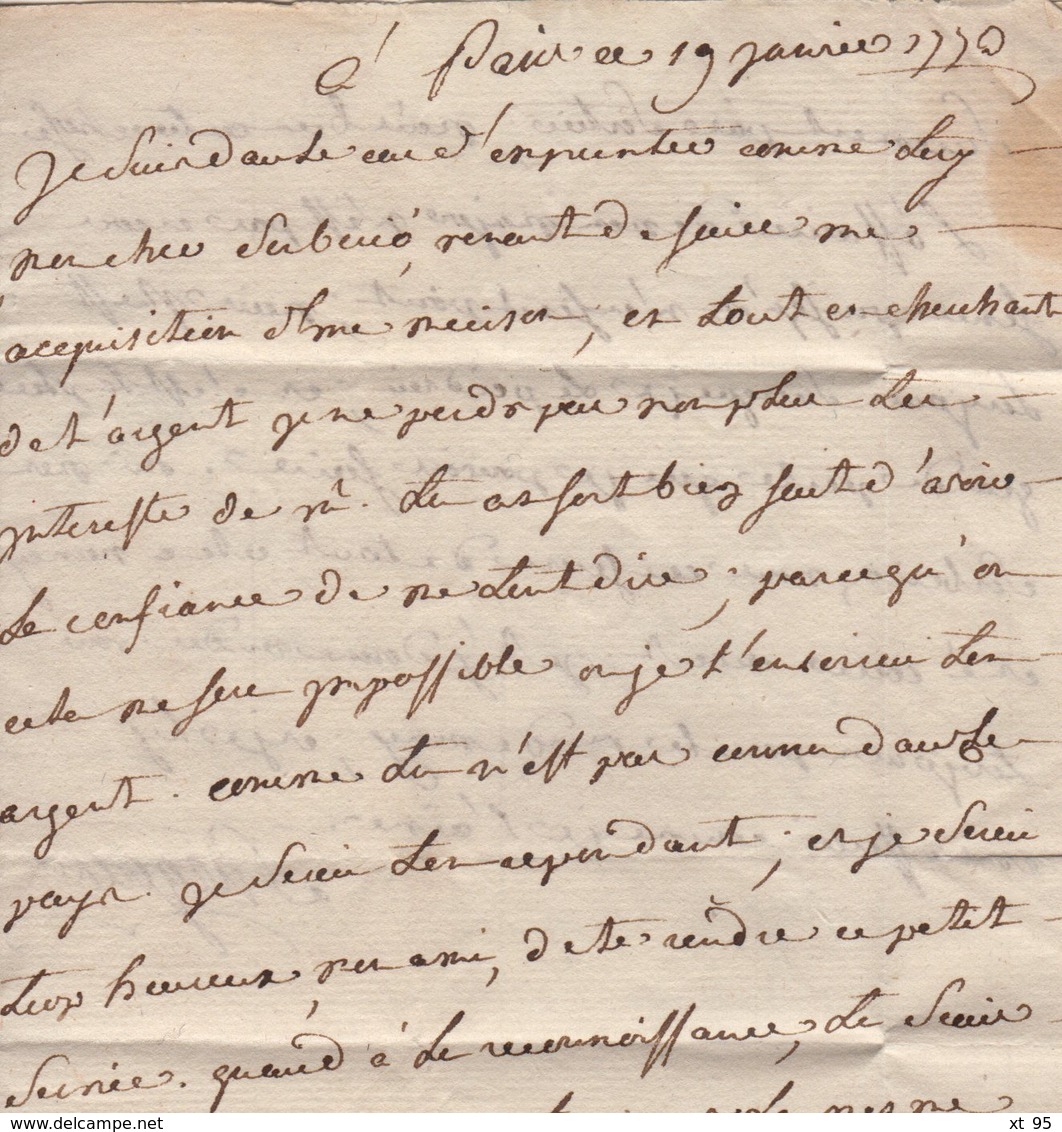 à Paris ce 19 janvier 1770
je suis dans le cas d'enprunter comme toy
mon cher venant de faire une
acquisition d'une maison, et tout en cherchant
de l'argent je ne perds pas non plus tes
interests de vu. tu as fort bien fait d'avoir
la confiance de me tout dire, parcequ'on
cela me sera impossible ou je t'aurai ton
argent. comme tu n'est pas connu dans le
pays. je serai ton repondant; et je serai
trop heureux, mon ami, de te rendre ce petit
service. quand à la reconnoissance, tu scais
meme
www.delcampe.net
xt 95